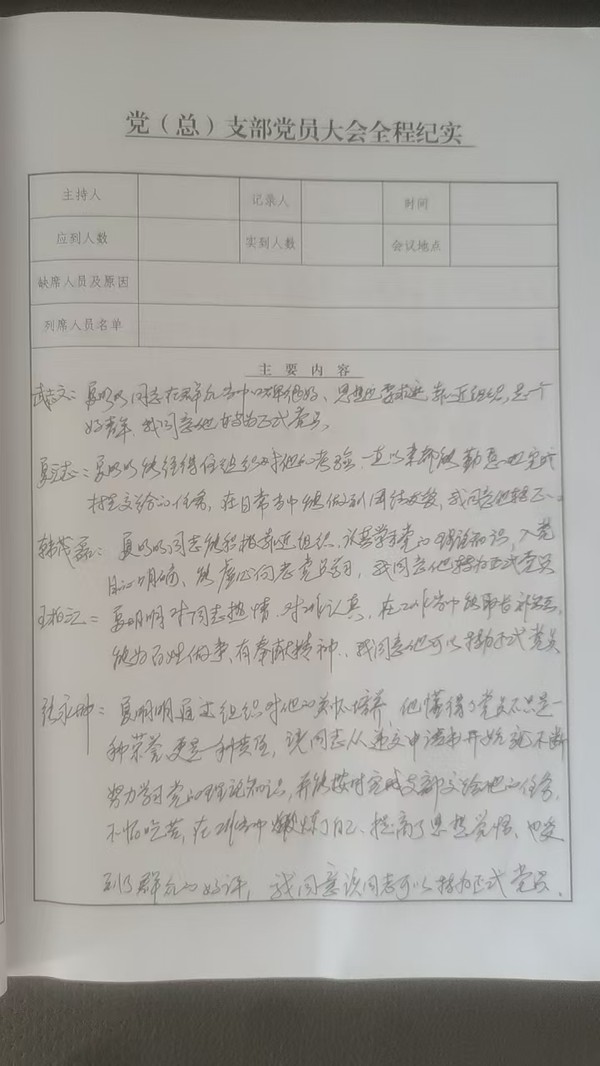 党（总）支部党员大会全程纪实
主持人 记录人 时间
应到人数 实到人数 会议地点
缺席人员及原因
列席人员名单
主要内容
武志文：夏明明同志在群众当中口碑很好、思想上要求进 靠近组织，是一个
好青年，我同意他转为正式党员。
夏志：夏明明能经得住组织对他的考验，一直以来都能勤恳地完成
村里交给的任务，在日常当中能做到团结友爱，我同意他转正。
韩茂磊：夏明明同志能积极靠近组织、认真学习党的理论知识，入党
目的明确、能虚心向老党员学习，我同意他转为正式党员
王柏江：夏明明对同志热情、对工作认真，在工作当中能取长补短，
能为百姓做事、有奉献精神、我同意他可以转为正式党员
张永坤：夏明明通过组织对他的关怀培养，他懂得了党员不只是一
种荣誉更是一种责任，该同志从递交申请书开始就不断
努力学习党的理论知识，并能按时完成支部交给他的任务，
不怕吃苦，在工作当中锻炼了自己、提高了思想觉悟、也受
到了群众的好评，我同意该同志可以转为正式党员。